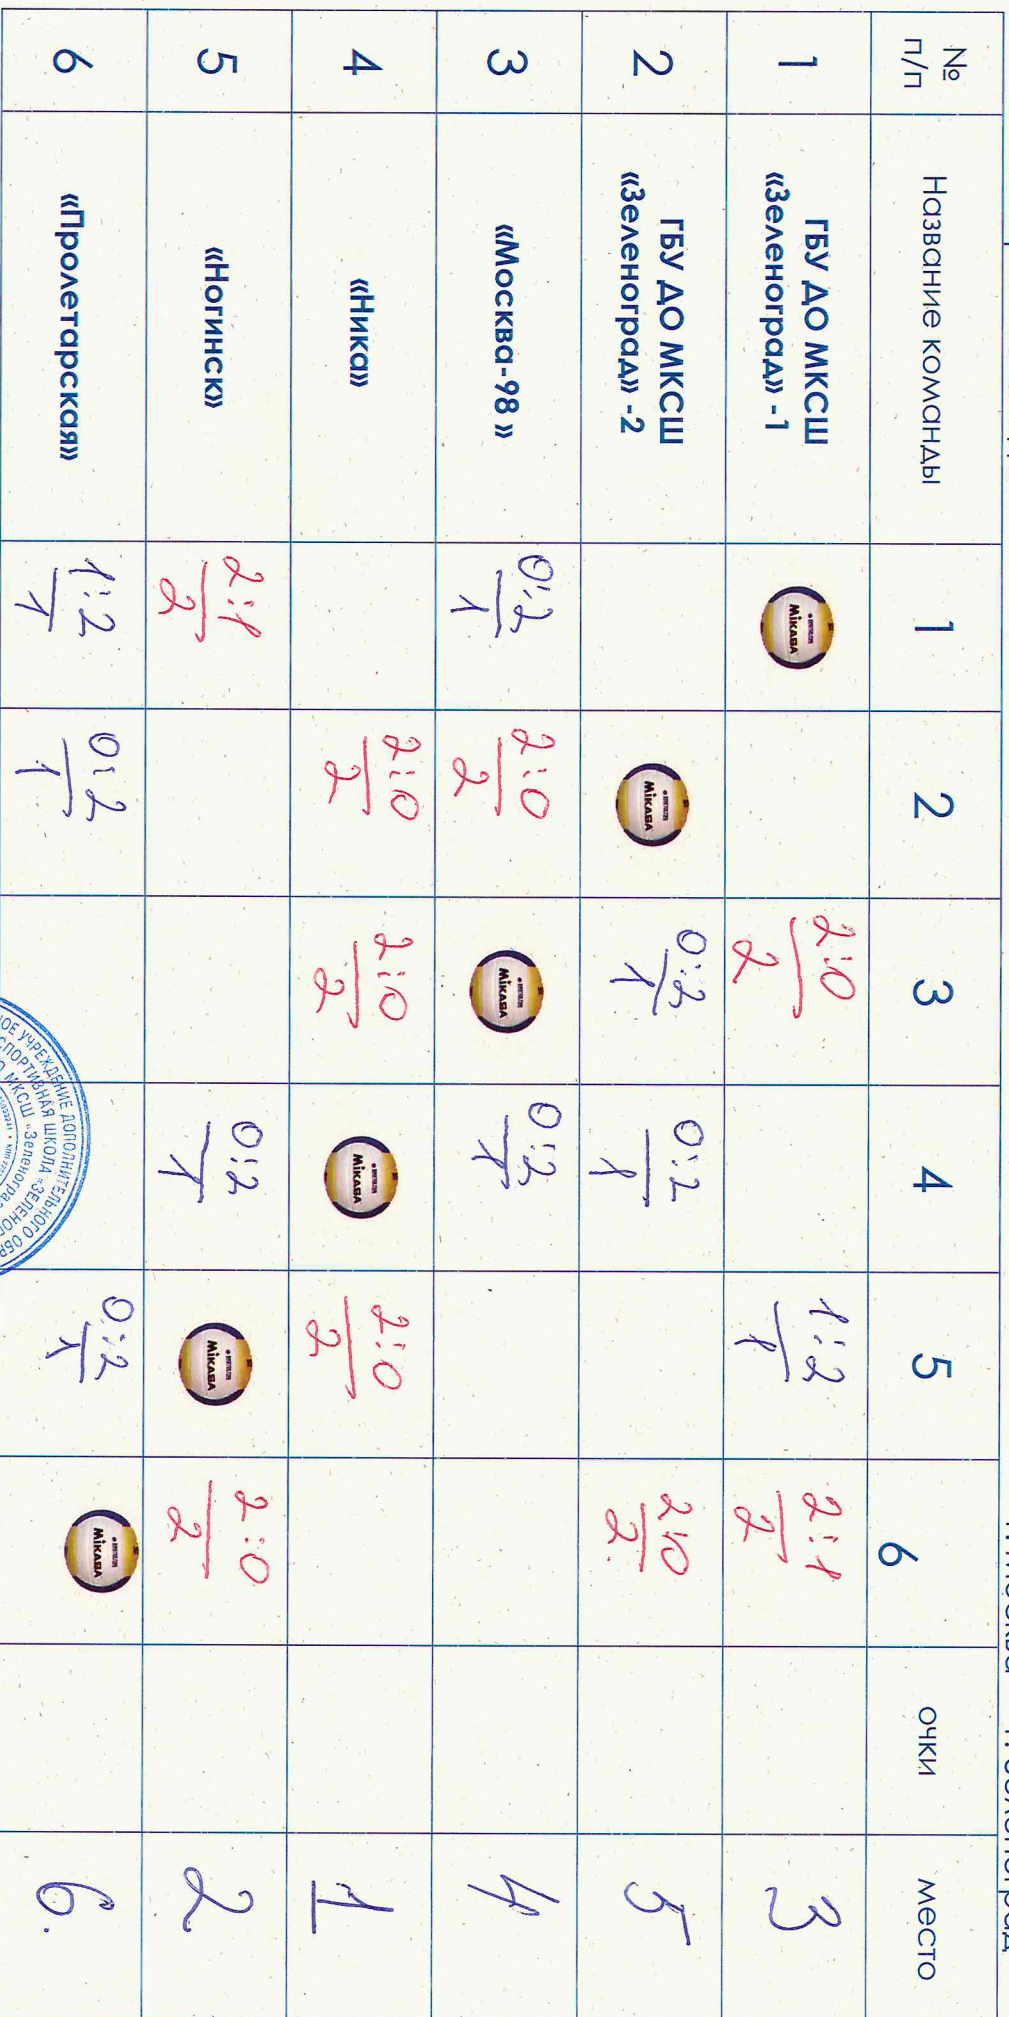 № п/п Название команды 1 2 3 4 5 6 очки место
1 ГБУ ДО МКСШ «Зеленоград» -1 MIKASA 2:0 1:2 2:1 3
2 1 2
2 ГБУ ДО МКСШ «Зеленоград» -2 MIKASA 0:2 0:2 2:0 5
1 1 2
3 «Москва-98 » 0:2 2:0 MIKASA 0:2 4
1 2 1
4 «Ника» 2:0 2:0 MIKASA 2:0 1
2 2 2
5 «Ногинск» 2:1 0:2 MIKASA 2:0 2
2 1 2
6 «Пролетарская» 1:2 0:2 0:2 MIKASA 6.
1 1 1
НОЕ УЧРЕЖДЕНИЕ ДОПОЛНИТЕЛЬНОГО ОБР
СПОРТИВНАЯ ШКОЛА «ЗЕЛЕНОГ
МКСШ «Зеленогра